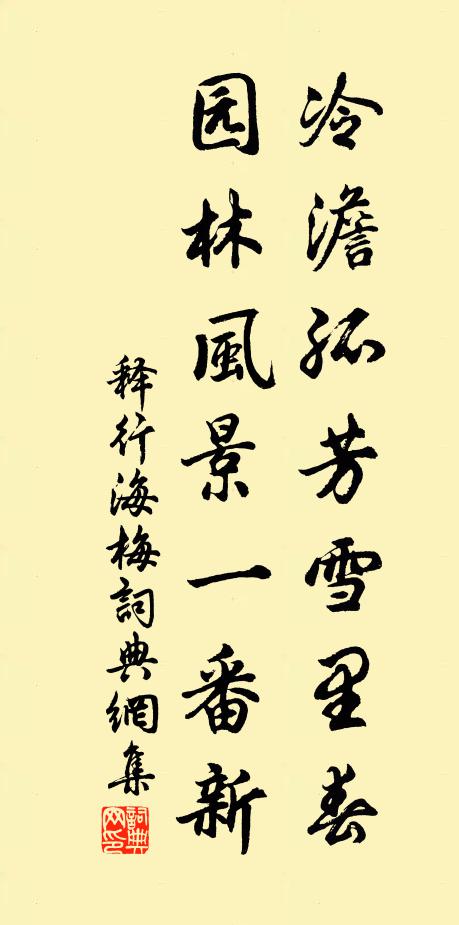 冷澹孤芳雪里春
园林風景一番新
释行海梅詞典網集
詞典网印